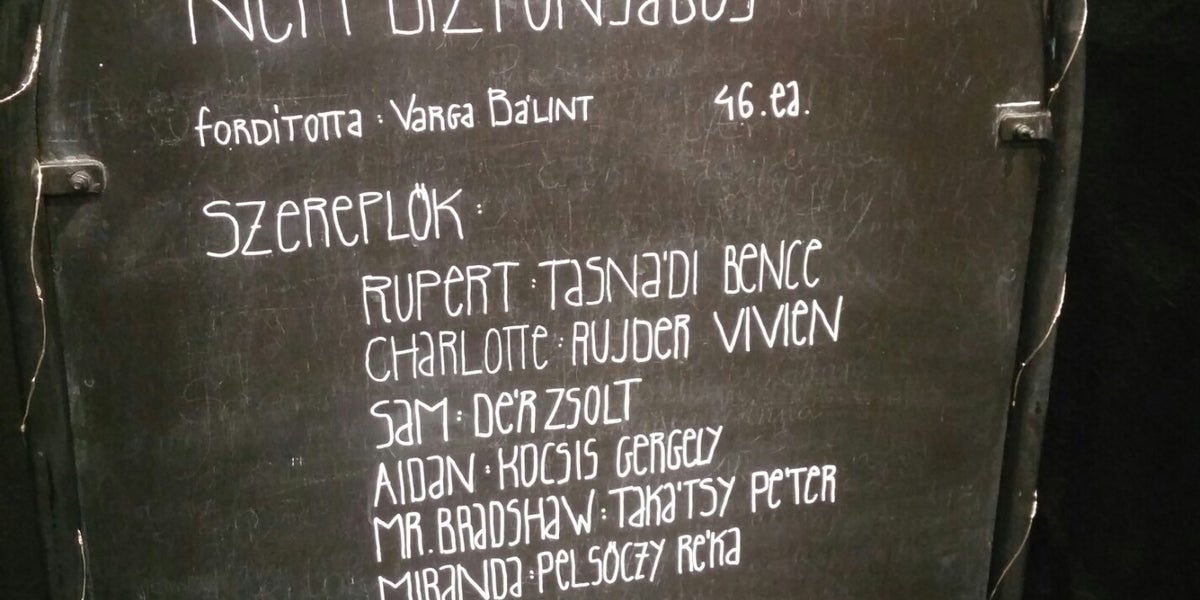 NEM BIZTONSÁGOS
FORDÍTOTTA: VARGA BÁLINT 46.ea.
SZEREPLŐK:
RUPERT: TASNÁDI BENCE
CHARLOTTE: RUJDER VIVIEN
SAM: DÉR ZSOLT
AIDAN: KOCSIS GERGELY
MR. BRADSHAW: TAKÁTSY PÉTER
MIRANDA: PELSŐCZY RÉKA